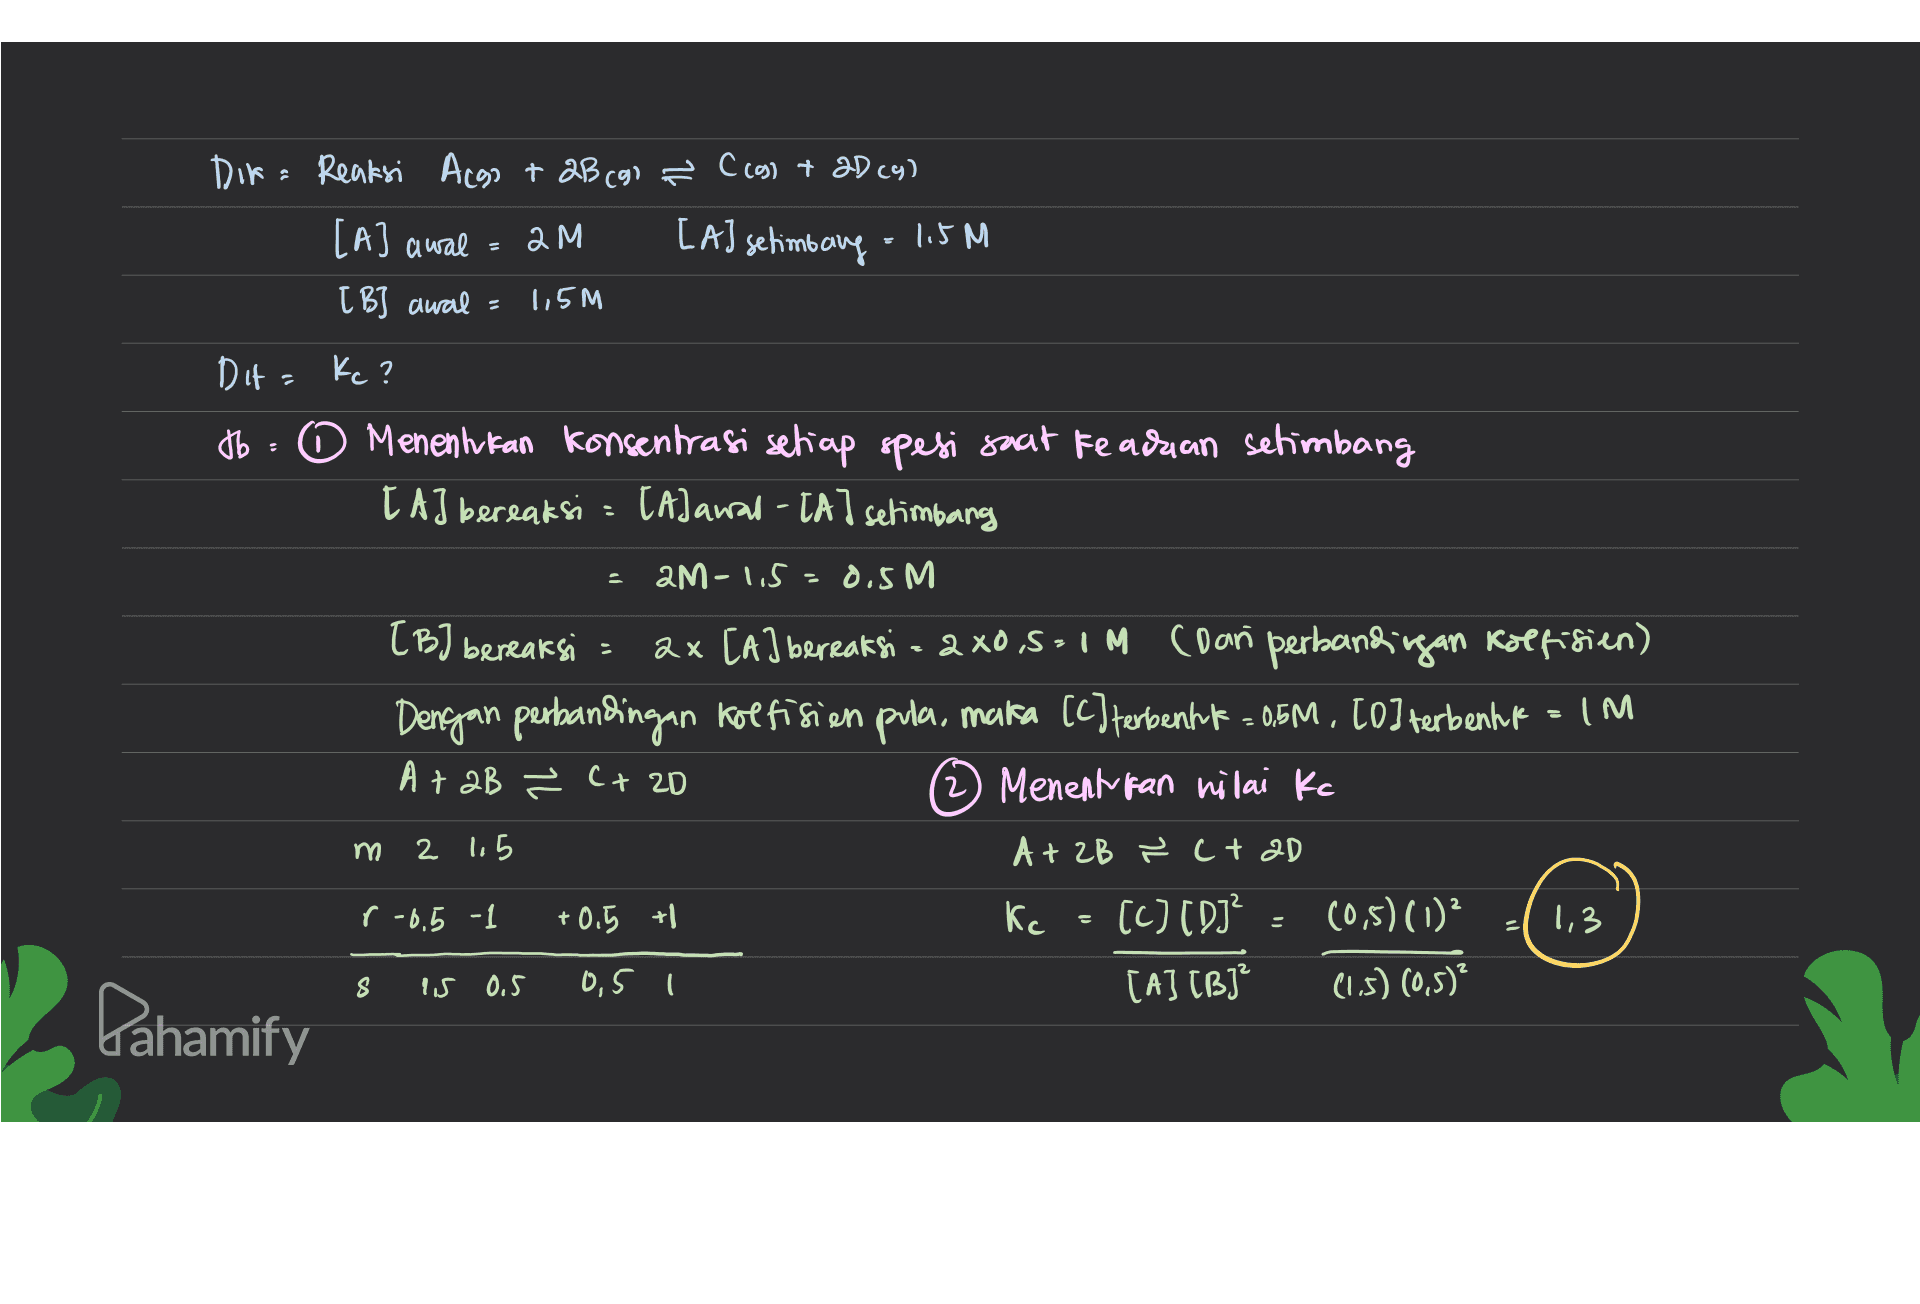 Dik = Reaksi A(g) + 2B(g) ⇌ C(g) + 2D(g)
[A] awal = 2M [A] setimbang = 1.5 M
[B] awal = 1,5M
Dit = Kc ?
Jb = ① Menentukan konsentrasi setiap spesi saat keadaan setimbang
[A] bereaksi = [A] awal - [A] setimbang
= 2M - 1.5 = 0.5 M
[B] bereaksi = 2 x [A] bereaksi = 2 x 0,5 = 1 M (Dari perbandingan koefisien)
Dengan perbandingan koefisien pula, maka [C] terbentuk = 0,5M, [D] terbentuk = 1 M
A + 2B ⇌ C + 2D
m 2 1.5
r -0.5 -1 +0.5 +1
s 1.5 0.5 0,5 1
② Menentukan nilai Kc
A + 2B ⇌ C + 2D
Kc = [C] [D]² = (0,5) (1)² = 1,3
[A] [B]² (1.5) (0,5)²
Pahamify